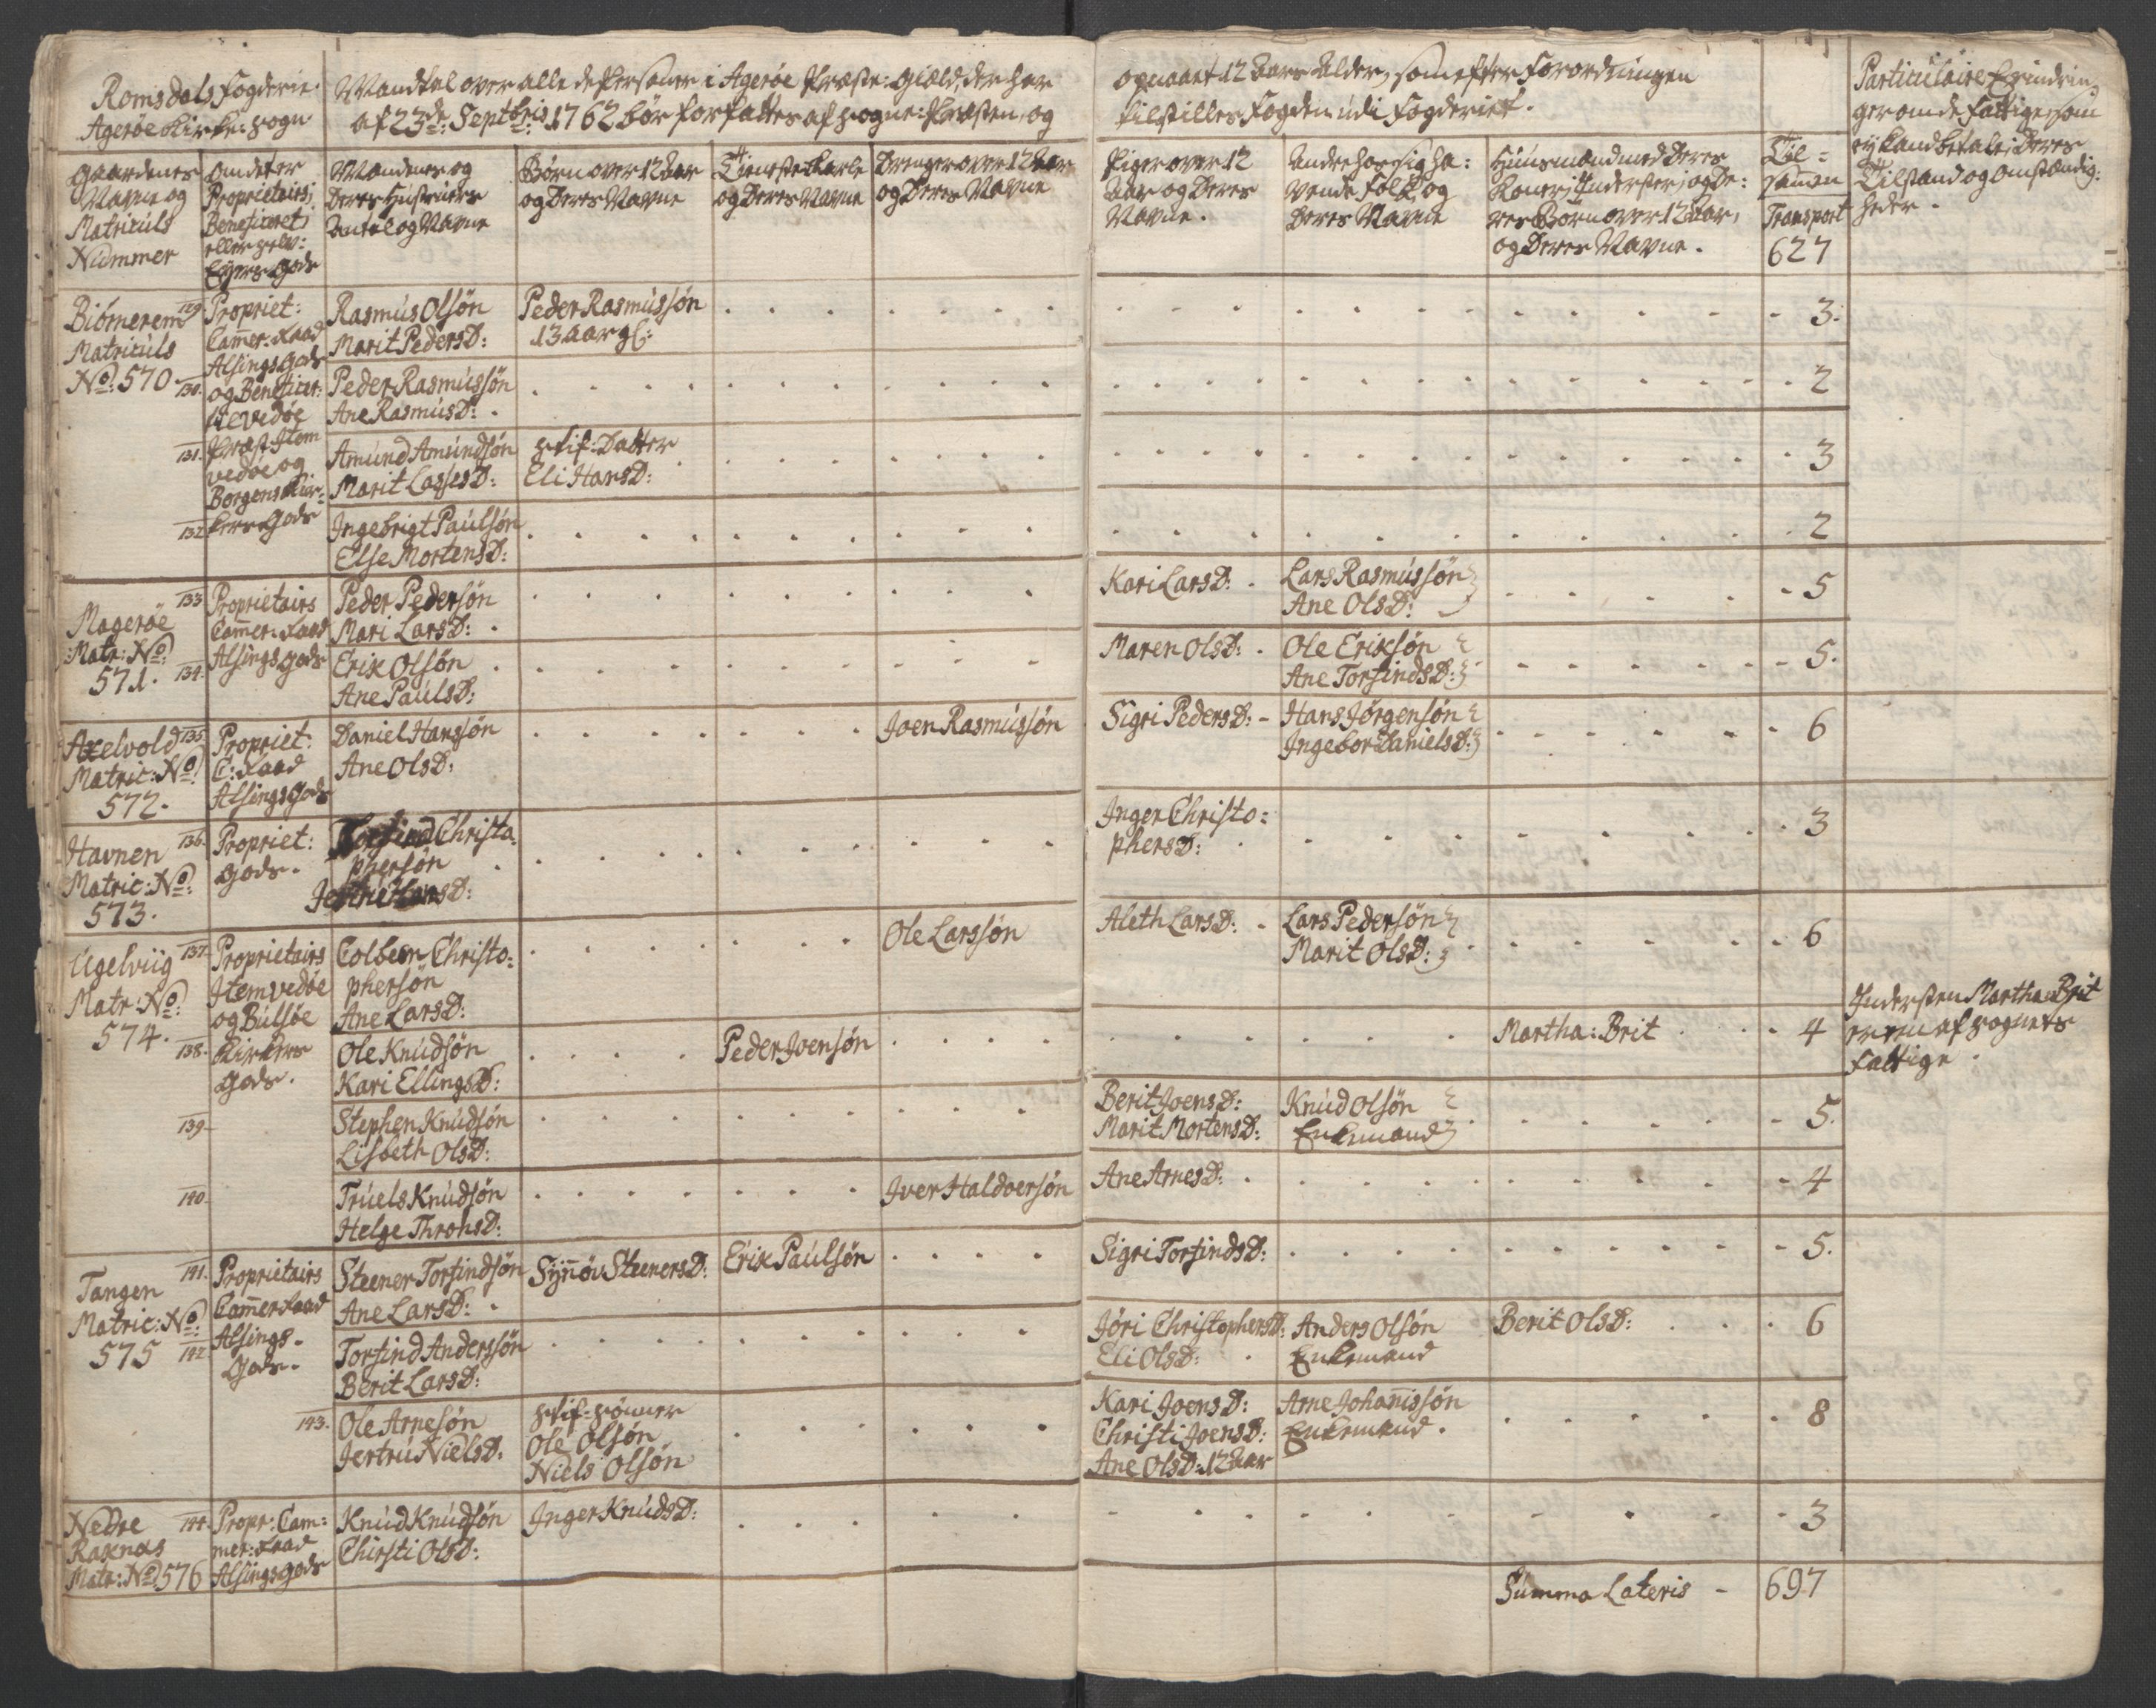 Romsdals Fogderie.
Agerøe Kirke-Sogn
Mandtal over alle de Personer i Agerøe Præste-Giæld, der har
af 23de Septbris 1762 bør forfattes af Sogne-Præsten, og
opnaaet 12 Aars Alder, som efter Forordningen
tilstilles Fogden udi Fogderiet.
Particulaire Erindrin-
ger om de Fattige, som
ej kand betale, deres
Tilstand og Omstændig-
heder.
Gaardenes
Navne og
Matriculs
Nummer
Om de er
Proprietairs,
Beneficeret,
eller selv-
Eyers Gods
Mandenes og
deres Hustruers
Antal og Navne
Børn over 12 Aar
og deres Navne
Tieneste Karle
og deres Navne
Drenger over 12 Aar
og deres Navne
Piger over 12
Aar og deres
Navne.
Andre hos sig ha-
vende Folk, og
deres Navne
Huusmænd med deres
Koner, Inderster, og de-
res Børn over 12 Aar,
og deres Navne.
Til-
sammen
Transport
627
Biörnerem
Matriculs
No: 570
Propriet:
Camer-Raad
Alsings Gods
og Beneficer:
Item Vedøe
Præst: Item
Vedøe og
Borgens Kir-
kers Gods
129. Rasmus Olsøn
Marit Peders D:
Peder Rasmussøn
13 Aar gl:
3.
130. Peder Rasmussøn
Ane Rasmus D:
2
131. Amund Amundsøn
Marit Lasses D:
Stif-Datter
Eli Hans D:
3
132. Ingebrigt Paulsøn
Else Mortens D:
2
Magerøe
Matr: No:
571.
Proprietairs
Camer-Raad
Alsings Gods
133. Peder Pedersøn
Mari Lars D:
Kari Lars D:
Lars Rasmussøn
Ane Ols D:
5
134. Erik Olsøn
Ane Pauls D:
Maren Ols D:
Ole Eriksøn
Ane Torfinds D:
5.
Axelvold
Matric: No:
572.
Propriet:
C: Raad
Alsings Gods
135. Daniel Hanssøn
Ane Ols D:
Joen Rasmussøn
Sigri Peders D:
Hans Jörgensøn
Ingebor Daniels D:
6
Havnen
Matric: No:
573.
Propriet:
Gods.
136. Torfind Christo-
phersøn
Hans D:
Inger Christo-
phers D:
3
Ugelviig
Matr: No:
574.
Proprietairs
Item Vedøe
og Bulsøe
Kirkers
Gods.
137. Colbeen Christo-
phersøn
Ane Lars D:
Ole Larssøn
Aleth Lars D:
Lars Pedersøn
Marit Ols D:
6
138. Ole Knudsøn
Kari Ellings D:
Peder Joensøn
Martha: Brit
4
Indersten Martha Brit
er en af Sognets
Fattige.
139. Stephen Knudsøn
Lisbeth Ols D:
Berit Joens D:
Marit Mortens D:
Knud Olsøn
Enkemand
5.
140. Truels Knudsøn
Helge Throns D:
Iver Haldversøn
Ane Arnes D:
4
Tangen
Matric: No:
575
Proprietairs
Camer Raad
Alsings
Gods.
141. Steener Torfindsøn
Ane Lars D:
Synnöv Steeners D:
Erik Paulsøn
Sigri Torfinds D:
5.
142. Torfind Anderssøn
Berit Lars D:
Jöri Christophers D:
Eli Ols D:
Anders Olsøn
Enkemand
Berit Ols D:
6
143. Ole Arnesøn
Jertru Niels D.
Stif-Sønner
Ole Olsøn
Niels Olsøn
Kari Joens D:
Christi Joens D:
Ane Ols D: 12 Aar
Arne Johanissøn
Enkemand.
8
Nedre
Raknæs
Matr: No: 576
Propr: Cam-
mer-Raad
Alsings Gods
144. Knud Knudsøn
Chirsti Ols D:
Inger Knuds D:
3
Summa Lateris - 697